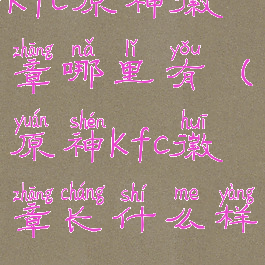 Kfc原神徽
zhāng nǎ lǐ yǒu
章哪里有（
yuán shén huī
原神Kfc徽
zhāng cháng shí me yàng
章长什么样